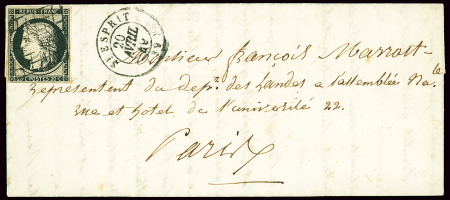 REPUB. FRANC.
20 C POSTES 20 C
ST ESPRIT
20
AVRIL
Monsieur françois Marrast
représentant du dep.t des Landes a l'assemblée Na.le
rue et hotel de l'université 22.
Paris